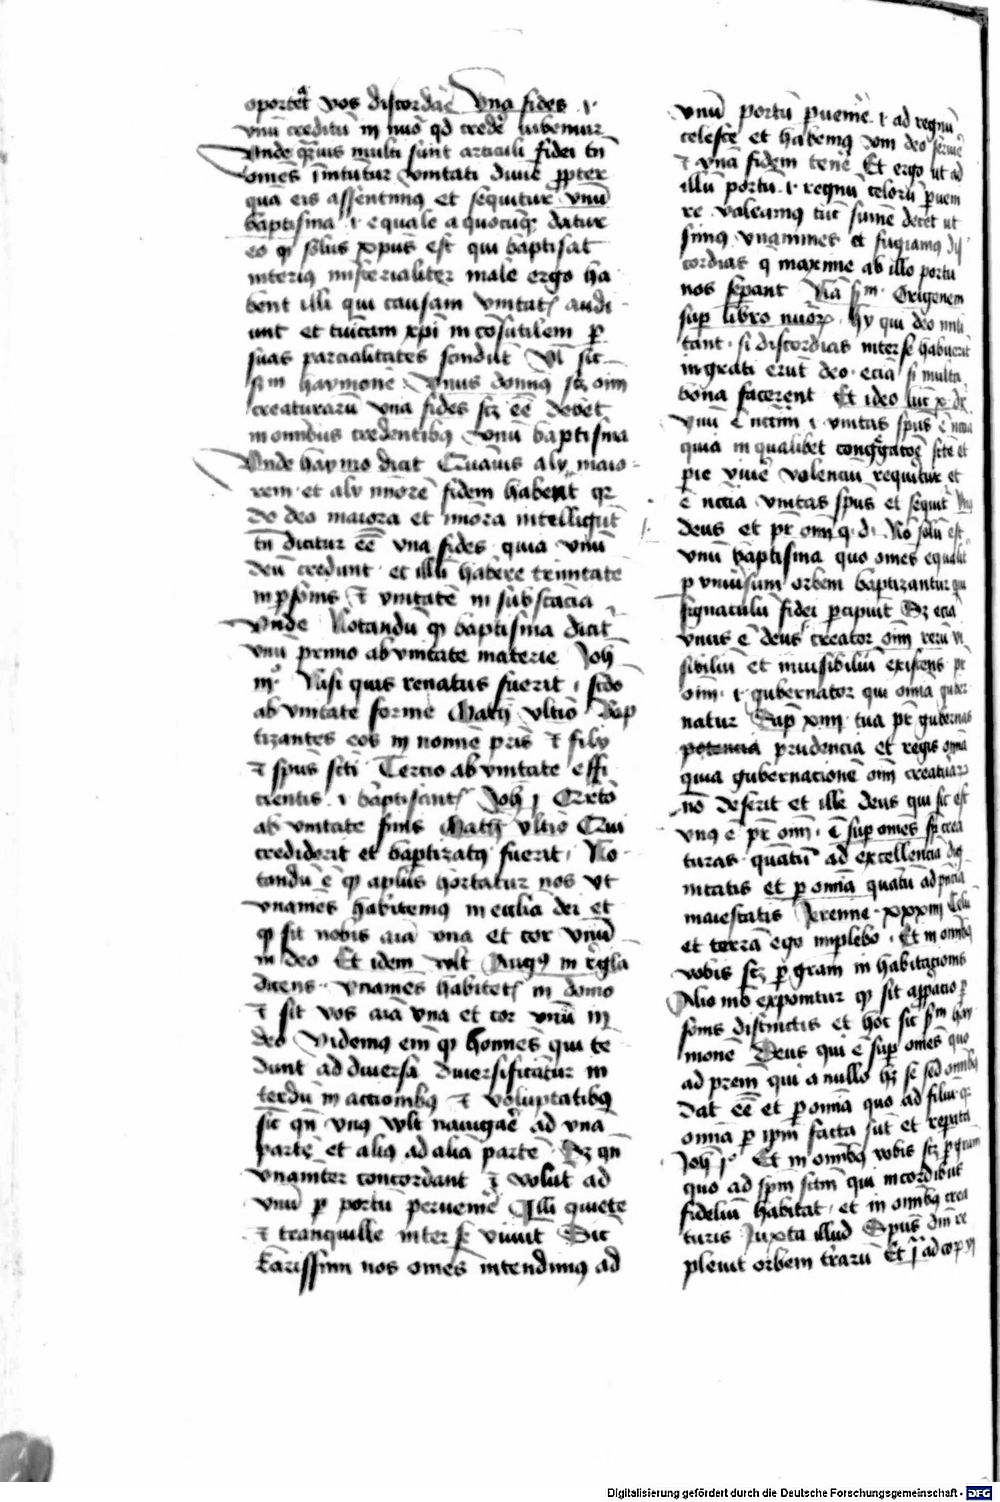 oportet vos discordare Una fides .i.
unū creditū in quo qd credē iubemur
Unde quāuis multi sunt articuli fidei tn̄
omēs innitūtur unitati diuīe ꝓpter
quā eis assentimꝰ et sequitur unū
baptisma .i. equale a quocūqꝫ datur
eo qꝫ solus xp̄us est qui baptisat
interiꝰ misterialiter male ergo ha
bent illi qui causam unitatis audi
unt et tunicam xp̄i incōsutilem ꝑ
suas parcialitates scindūt Ul' sic
scdm haymonē Unus dominꝰ scꝫ oīm
creaturarū una fides scꝫ eē debet
in omnibus credentibꝫ unū baptisma
Unde haymo dicit Quāuis alij maio
rem et alij minorē fidem habent qꝫ
de deo maiora et minora intelligūt
tn̄ dicitur eē una fides quia unū
deū credunt et illū habere trinitatē
in ꝑsonis et unitatē in substācia
Unde Notandū qꝫ baptisma dicit
unū primo ab unitate materie Joh
iijº Nisi quis renatus fuerit , scdo
ab unitate forme Math ultiō Bap
tizantes eos in nomīe pr̄is et filij
et sp̄us sc̄ti Tercio ab unitate effi
cientis .i. baptisantis Joh j Quarto
ab unitate finis Math ultiō Qui
crediderit et baptizatꝰ fuerit , No
tandū ē qꝫ aplūs hortatur nos ut
unamēs habitemꝰ in ecclīa dei et
qꝫ sit nobis aīa una et cor unū
in deo Et idem vult Augꝰ in regla
dicens unamēs habitetis in domo
et sit vos aīa una et cor unū in
deo Videmꝰ em̄ qꝫ homīes qui te
dunt ad diuersa diuersificātur in
terdū in accionibꝫ et voluptatibꝫ
sic qn̄ unꝰ vult nauigāē ad unā
partē et aliꝰ ad aliā partē Sꝫ qn̄
unamiter concordant et volut ad
unū ꝑ portū peruenīē Illi quiete
et tranquille inter se viuūt Sic
karissimi nos omēs intendimꝰ ad
unū portū ꝑuenīē .i. ad regnū
celeste et habemꝰ uni deo seruīē
et unā fidem tenē Et ergo ut ad
illū portū .i. regnū celorū ꝑuenī
re valeamꝰ tūc sūme decet ut
simꝰ unamines et fugiamꝰ dis
cordias q̄ maxime ab illo portu
nos seꝑant Nā scdm Origenem
sup libro nūorꝝ hij qui deo mili
tant si discordias inter se habuerīt
ingrati erūt deo eciā si multa
bona facerent Et ideo
quia in qualibet congregatoē scte et
pie viuē volenciū requiritur et
ē nccīa unitas sp̄us et sequit Unꝰ
deus et pr̄ oīm q.d. Nō solū est
unū baptisma quo omēs equalit
ꝑ uniūsum orbem baptizantur
signaculū fidei ꝑcipiūt Sꝫ eciā
unus ē deus creator oīm rerū vi
sibiliū et inuisibiliū existens pr̄
oīm .i. gubernator qui omīa guber
natur Sap xiiij tua pr̄ gubernas
potencia prudencia et regis omīa
quia gubernacionē oīm creaturarꝝ
nō deserit et ille deus qui sic est
unꝰ ē pr̄ oīm , ē sup omēs scꝫ crea
turas quātū ad excellenciā dig
nitatis et ꝑ omīa quātū ad pn̄ciā
maiestatis Jeremie xxxiij Celū
et terrā ego impleo , Et in omībꝫ
vobis scꝫ ꝑ gram inhabitacionis
Alio mō exponitur qꝫ sit apꝓpacio ꝑ
sonis distinctis et hoc sic scdm hay
monē Deus qui ē sup omēs quo
ad prem̄ qui a nullo hꝫ se sed omībꝫ
dat eē et ꝑ omīa quo ad filiū qꝫ
omīa ꝑ ip̄m facta sūt et reparata
Joh jº Et in omībꝫ vobis scꝫ ꝑ gram
quo ad sp̄m sctm̄ qui in cordibus
fideliū habitat , et in omībꝫ crea
turis Juxta illud Sp̄us dn̄i re
pleuit orbem terrarū